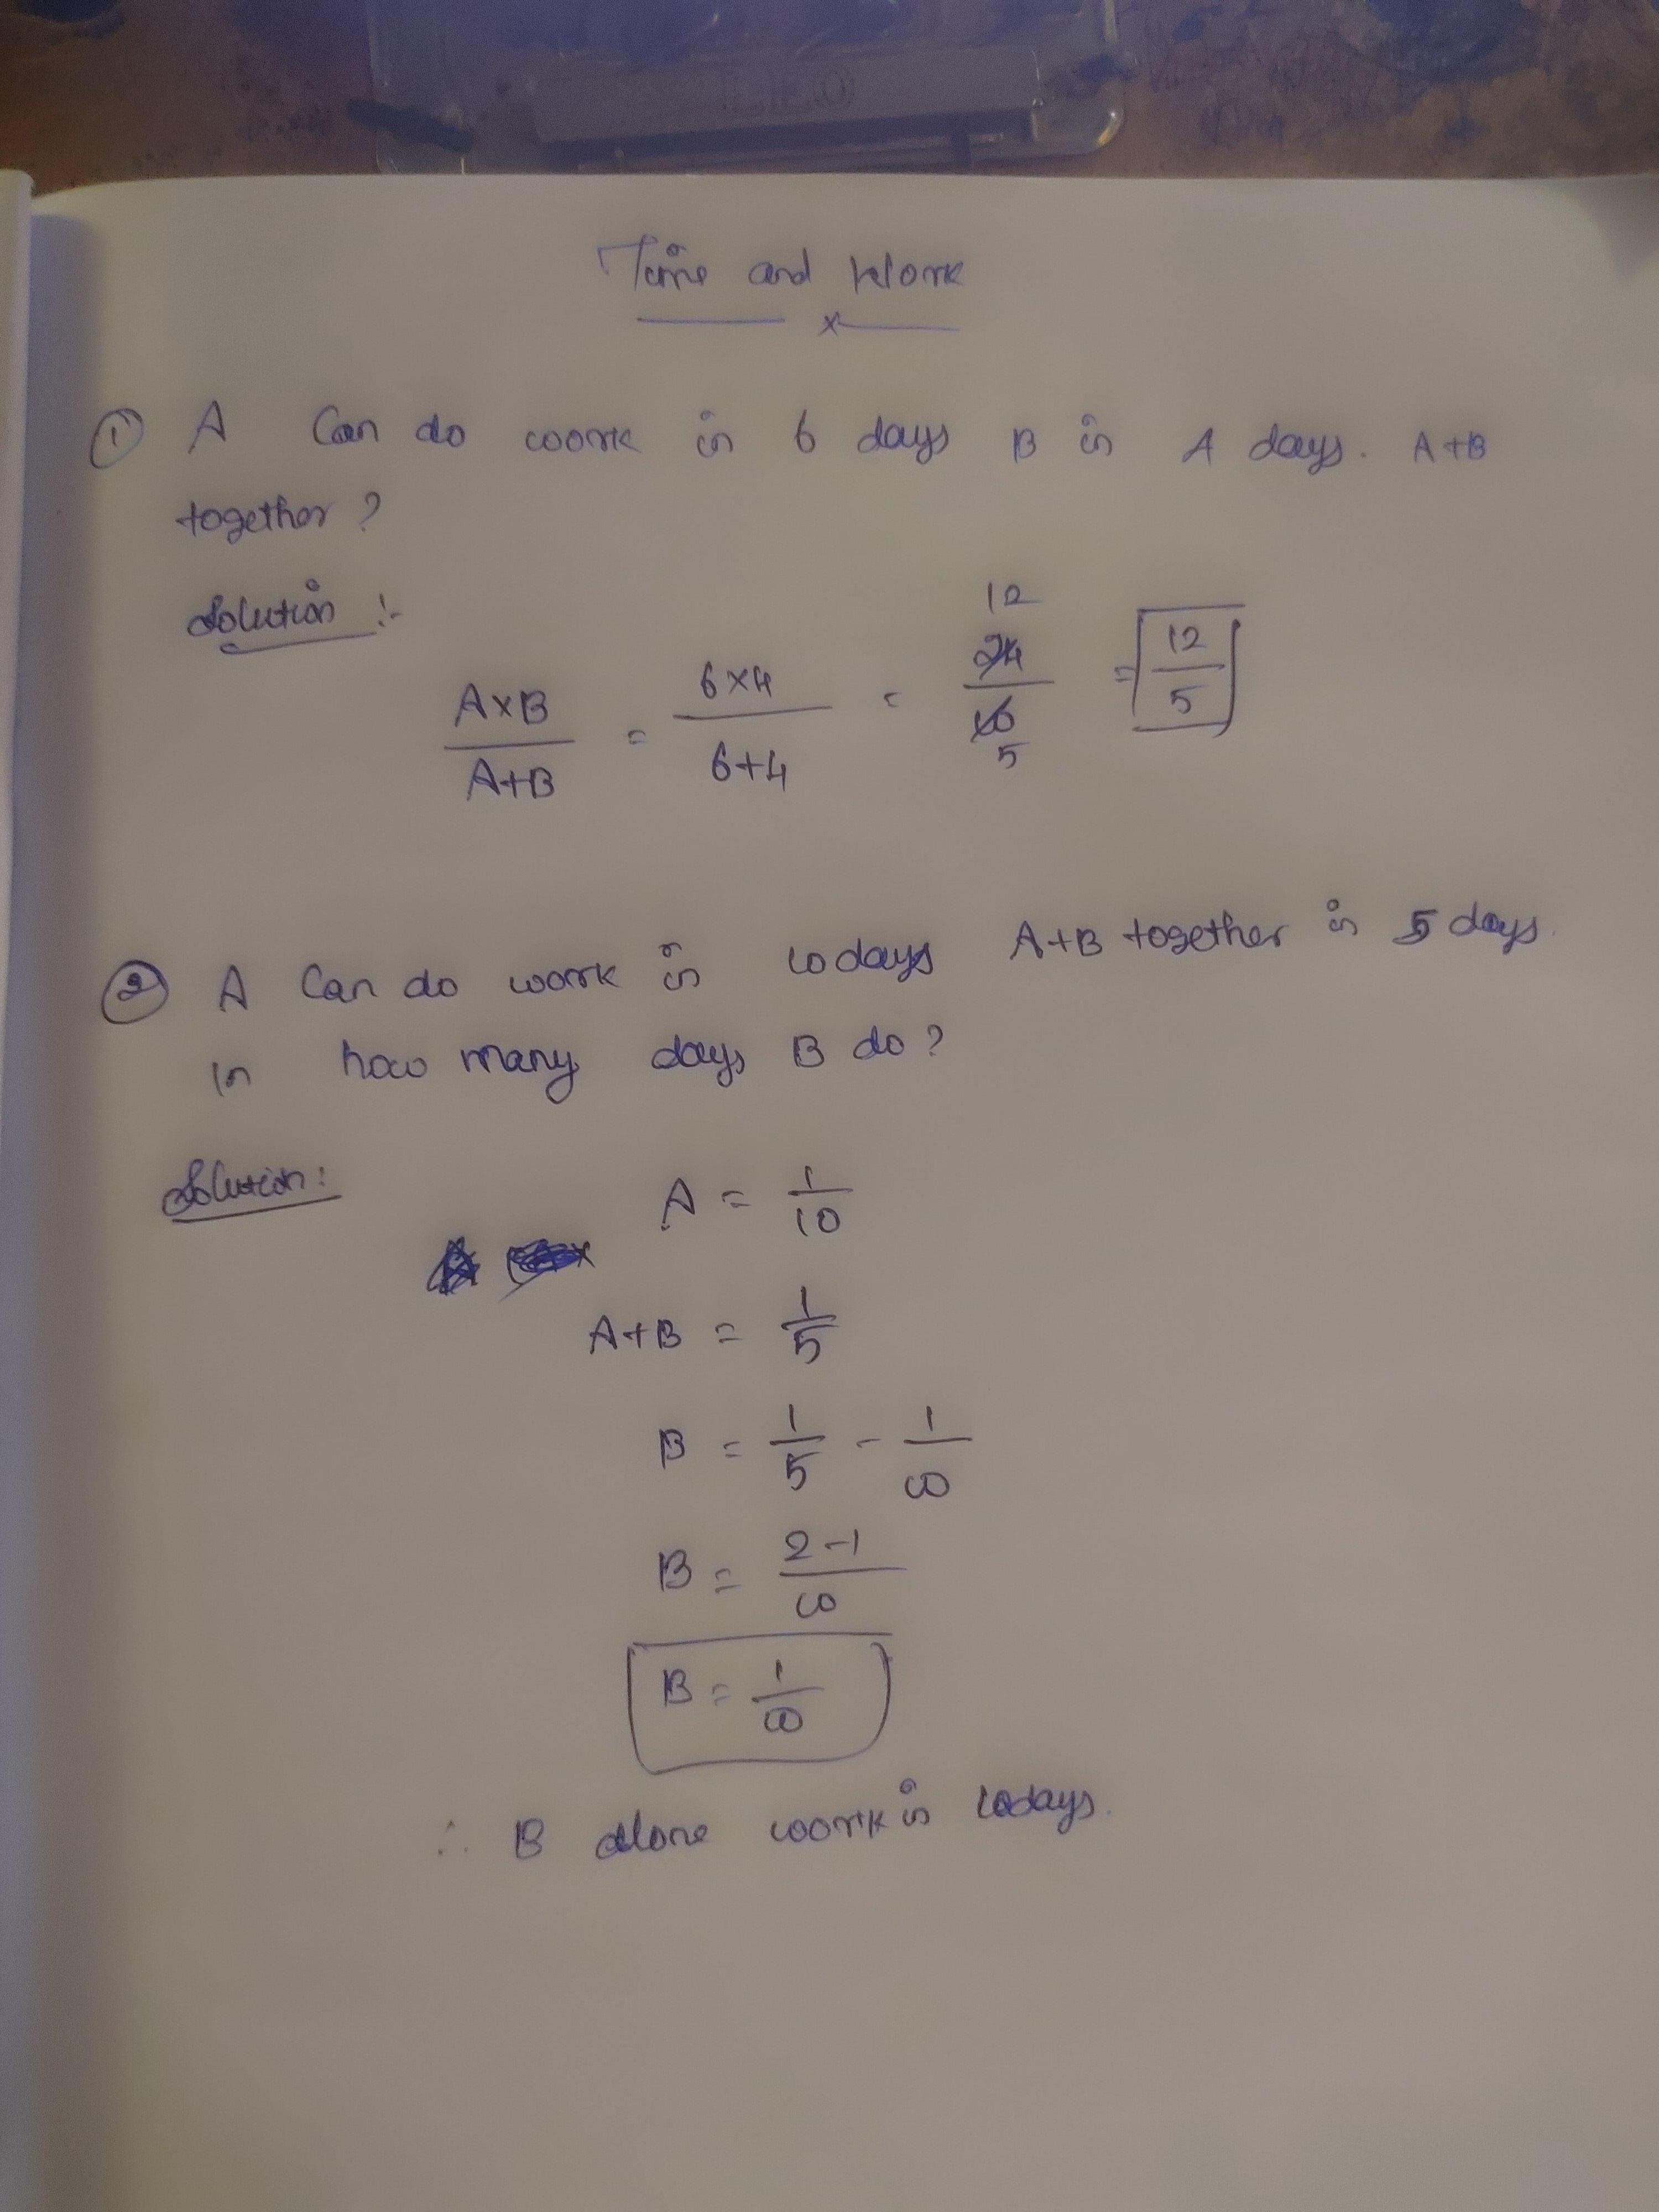 Time and Work
x
① A Can do work in 6 days B in 4 days. A+B
together ?
Solution :-
A×B / A+B = 6×4 / 6+4 = 12 24 / 10 5 = 12 / 5
② A Can do work in 10 days A+B together in 5 days.
in how many days B do ?
Solution :
A = 1/10
A+B = 1/5
B = 1/5 - 1/10
B = 2-1 / 10
B = 1/10
∴ B alone work in 10 days.